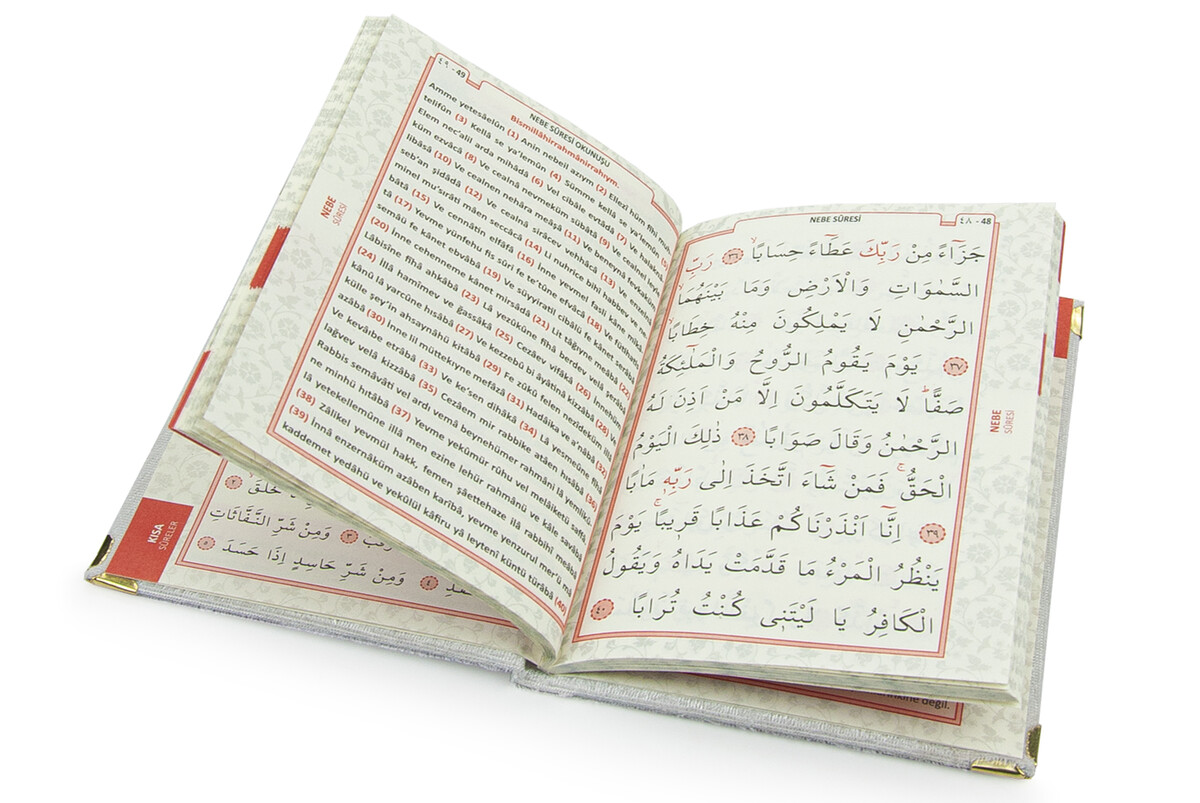 NEBE SÛRESİ
٤٨ - 48
جَزَٓاءً مِنْ رَبِّكَ عَطَٓاءً حِسَابًاۙ ﴿٣٦﴾ رَبِّ
السَّمٰوَاتِ وَالْاَرْضِ وَمَا بَيْنَهُمَا
الرَّحْمٰنِ لَا يَمْلِكُونَ مِنْهُ خِطَابًاۚ
﴿٣٧﴾ يَوْمَ يَقُومُ الرُّوحُ وَالْمَلٰٓئِكَةُ
صَفًّاۜ لَا يَتَكَلَّمُونَ اِلَّا مَنْ اَذِنَ لَهُ
الرَّحْمٰنُ وَقَالَ صَوَابًا ﴿٣٨﴾ ذٰلِكَ الْيَوْمُ
الْحَقُّۚ فَمَنْ شَٓاءَ اتَّخَذَ اِلٰى رَبِّهٖ مَاٰبًا
﴿٣٩﴾ اِنَّٓا اَنْذَرْنَاكُمْ عَذَابًا قَرٖيبًاۚ يَوْمَ
يَنْظُرُ الْمَرْءُ مَا قَدَّمَتْ يَدَاهُ وَيَقُولُ
الْكَافِرُ يَا لَيْتَنٖي كُنْتُ تُرَابًا ﴿٤٠﴾
NEBE
SÛRESİ
٤٩ - 49
NEBE SÛRESİ OKUNUŞU
Bismillâhirrahmânirrahıym.
Amme yetesâelûn (1) Anin nebeil azıym (2) Ellezî hüm fîhi muh
telifûn (3) Kellâ se ya'lemûn (4) Sümme kellâ se ya'lemûn (5)
Elem nec'alil arda mihâdâ (6) Vel cibâle evtâdâ (7) Ve halaknâ
küm ezvâcâ (8) Ve cealnâ nevmeküm sübâtâ (9) Ve cealnel leyle
libâsâ (10) Ve cealnen nehâra meâşâ (11) Ve beneynâ fevkaküm
seb'an şidâdâ (12) Ve cealnâ sirâcev vehhâcâ (13) Ve enzelnâ
minel mu'sırâti mâen seccâcâ (14) Li nuhrice bihî habbev ve ne
bâtâ (15) Ve cennâtin elfâfâ (16) İnne yevmel fasli kâne mîkâ
tâ (17) Yevme yünfehu fıs sûri fe te'tûne efvâcâ (18) Ve fütihatis
semâü fe kânet ebvâbâ (19) Ve süyyiratil cibâlü fe kânet serâbâ
(20) İnne cehenneme kânet mirsâdâ (21) Lit tâğıyne meâbâ (22)
Lâbisîne fîhâ ahkâbâ (23) Lâ yezûkûne fîhâ berdev velâ şerâbâ
(24) İllâ hamîmev ve ğassâkâ (25) Cezâev vifâkâ (26) İnnehüm
kânû lâ yarcûne hısâbâ (27) Ve kezzebû bi âyâtinâ kizzâbâ (28) Ve
külle şey'in ahsaynâhü kitâbâ (29) Fe zûkû felen nezîdeküm illâ
azâbâ (30) İnne lil müttekıyne mefâzâ (31) Hadâika ve a'nâbâ (32)
Ve kevâıbe etrâbâ (33) Ve ke'sen dihâkâ (34) Lâ yesmeûne fîhâ
lağvev velâ kizzâbâ (35) Cezâem mir rabbike atâen hısâbâ (36)
Rabbis semâvâti vel ardı vemâ beynehümer rahmâni lâ yemlikû
ne minhü hıtâbâ (37) Yevme yekûmür rûhu vel melâiketü saffâ
lâ yetekellemûne illâ men ezine lehür rahmânü ve kâle savâbâ
(38) Zâlikel yevmül hakk, femen şâettehaze ilâ rabbihî meâbâ
(39) İnnâ enzernâküm azâben karîbâ, yevme yenzurul mer'ü mâ
kaddemet yedâhü ve yekûlül kâfiru yâ leytenî küntü türâbâ (40)
NEBE
SÛRESİ
KISA
SÛRELER
خَلَقَۙ ﴿٢﴾
وَقَبَۙ ﴿٣﴾ وَمِنْ شَرِّ النَّفَّاثَاتِ
﴿٤﴾ وَمِنْ شَرِّ حَاسِدٍ اِذَا حَسَدَ ﴿٥﴾
değil.